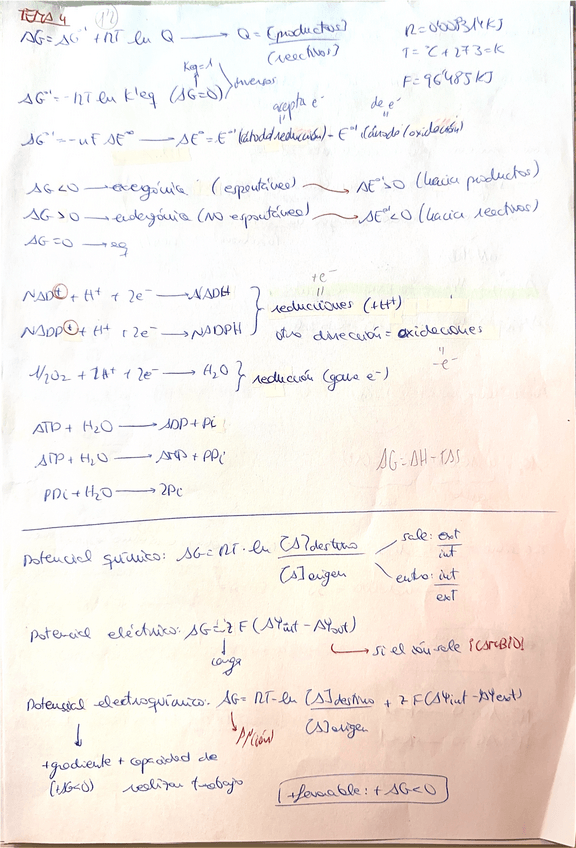 TEMA 4
ΔG = ΔG°' + RT ln Q → Q = [productos] / [reactivos]
R = 0'008314 KJ
T = °C + 273 = K
F = 96'485 KJ
Keq = 1
ΔG°' = -RT ln K'eq (ΔG=0) inversos
acepta e⁻ da e⁻
ΔG°' = -nF ΔE°' → ΔE°' = E°' (cátodo/reducción) - E°' (ánodo/oxidación)
ΔG<0 → exergónica (espontáneo) → ΔE°'>0 (hacia productos)
ΔG>0 → endergónica (NO espontáneo) → ΔE°'<0 (hacia reactivos)
ΔG=0 → eq
+e⁻
NAD⁺ + H⁺ + 2e⁻ → NADH
reducciones (+H⁺)
NADP⁺ + H⁺ + 2e⁻ → NADPH
otra dirección = oxidaciones
-e⁻
1/2O₂ + 2H⁺ + 2e⁻ → H₂O } reducción (gana e⁻)
ATP + H₂O → ADP + Pi
ATP + H₂O → AMP + PPi
ΔG = ΔH - TΔS
PPi + H₂O → 2Pi
Potencial químico: ΔG = RT · ln [S]destino / [S]origen
sale: ext / int
entra: int / ext
Potencial eléctrico: ΔG = z F (ΔΨint - ΔΨout)
carga
si el ión sale ¡CAMBIO!
Potencial electroquímico: ΔG = RT · ln [S]destino / [S]origen + z F (ΔΨint - ΔΨext)
+gradiente + capacidad de
(+ΔG<0) realizar trabajo
+favorable: +ΔG<0